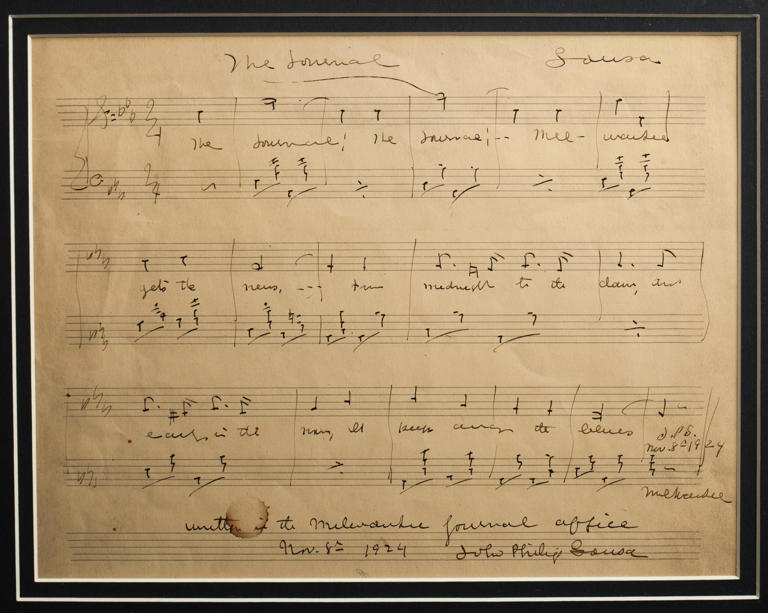 The Journal Sousa
The Journal; The Journal; -- Mil- waukee
gets the news, --- from midnight to the dawn, and
early in the morn, It keeps away the blues
J.P.S.
Nov. 8th 1924
Milwaukee
written in the Milwaukee Journal office
Nov. 8th 1924 John Philip Sousa